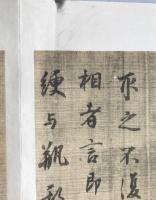 取之不復
相者言即
綆与瓶形